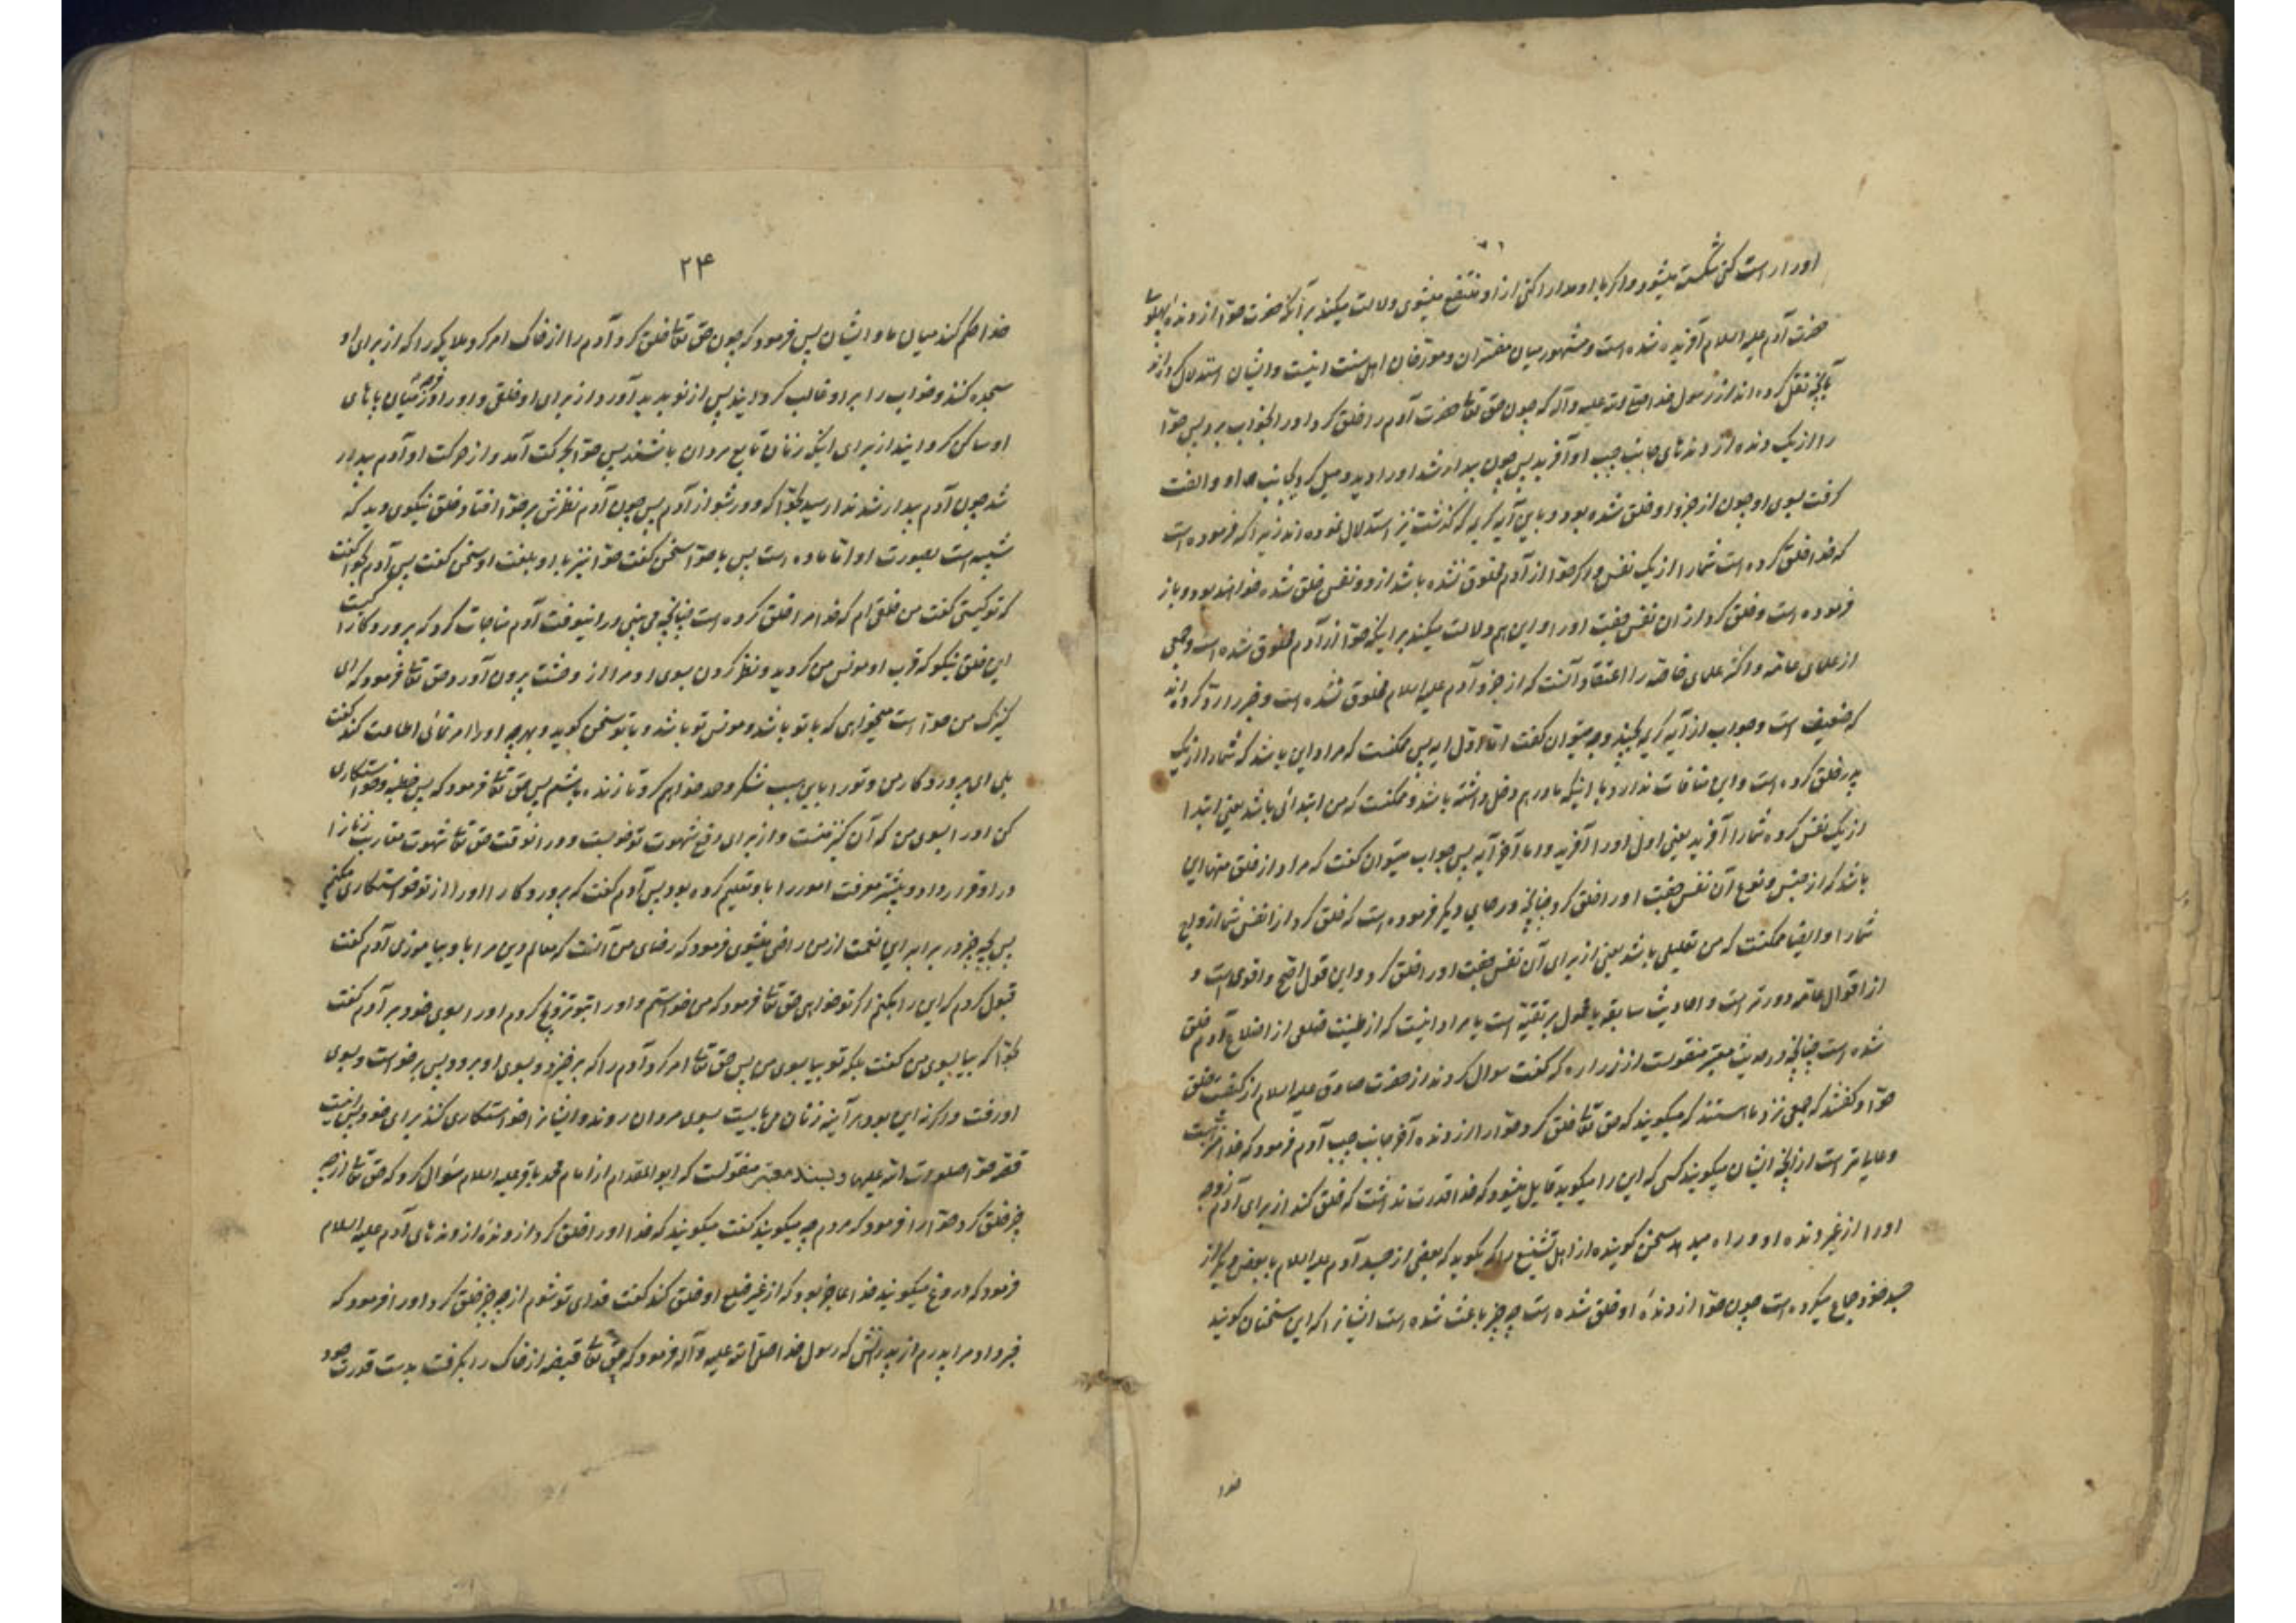 او را راست کنی شکسته میشود و اگر با او مدارا کنی از او منتفع میشوی دلالت میکند بر آنکه حضرت حوا از دنده پهلوی
حضرت آدم علیه السلام آفریده شده است و مشهور میان مفسران و مورخان اهل سنت اینست و ایشان استدلال کرده‌اند
بآنچه نقل کرده‌اند از رسول خدا صلی الله علیه و آله که چون حق تعالی حضرت آدم را خلق کرد او را بخواب برد پس حوا
را از یک دنده از دنده‌های جانب چپ او آفرید پس چون بیدار شد او را دید و میل کرد بجانب او و الفت
گرفت بسوی او چون از جزو او خلق شده بود و باین آیه کریمه که گذشت نیز استدلال نموده‌اند زیرا که فرموده است
که خدا خلق کرده است شما را از یک نفس و اگر حوا از آدم مخلوق نشده باشد از دو نفس خلق شده خواهند بود و باز
فرموده است و خلق کرد از ان نفس جفت او را و این هم دلالت میکند بر اینکه حوا از آدم مخلوق شده است و جمعی
از علمای عامه و اکثر علمای خاصه را اعتقاد آنست که از جزو آدم علیه السلام مخلوق نشده است و خبر را رد کرده‌اند
که ضعیف است و جواب از آیه کریمه بچند وجه میتوان گفت اما اول آیه پس ممکنست که مراد این باشد که شما را از یک
پدر خلق کرده است و این منافات ندارد با اینکه مادر هم دخل داشته باشد و ممکنست که من ابتدائی باشد یعنی ابتدا
از یک نفس کرده شما را آفرید یعنی اول او را آفرید و اما آخر آیه پس جواب میتوان گفت که مراد از خلق منها این
باشد که از جنس و نوع آن نفس جفت او را خلق کرد چنانچه در جای دیگر فرموده است که خلق کرد از انفس شما ازواج
شما را و ایضا ممکنست که من تعلیلی باشد یعنی از برای آن نفس جفت او را خلق کرد و این قول اصح و اقوی است و
از اقوال عامه دورتر است و احادیث سابقه یا محمول بر تقیه است یا مراد اینست که از طینت ضلعی از اضلاع آدم خلق
شده است چنانچه در حدیث معتبر منقولست از زراره که گفت سوال کردند از حضرت صادق علیه السلام از کیفیت خلق
حوا و گفتند که جمعی نزد ما هستند که میگویند که حق تعالی خلق کرد حوا را از دنده آخر جانب چپ آدم فرمود که خدا منزه است
و عالی‌تر است از آنچه ایشان میگویند کسی که این را میگوید قایل میشود که خدا قدرت نداشت که خلق کند از برای آدم زوجه
او را از غیر دنده او و راه میدهد سخن گوینده از اهل تشنیع را که بگوید که بعضی از جسد آدم علیه السلام با بعضی دیگر از
جسد خود جماع میکرده است چون حوا از دندهٔ او خلق شده است چه چیز باعث شده است ایشانرا که این سخنان گویند
خدا
۲۴
خدا حکم کند میان ما و ایشان پس فرمود که چون حق تعالی خلق کرد آدم را از خاک امر کرد ملایکه را که از برای او
سجده کنند و خواب را بر او غالب گردانید پس از نو پدید آورد از برای او خلقی و او را در میان پاهای
او ساکن گردانید از برای اینکه زنان تابع مردان باشند پس حوا بحرکت آمد و از حرکت او آدم بیدار
شد چون آدم بیدار شد ندا رسید بحوا که دور شو از آدم پس چون آدم نظرش بر حوا افتاد خلق نیکوی دید که
شبیه است بصورت او اما ماده است پس با حوا سخن گفت حوا نیز با او بلغت او سخن گفت پس آدم بحوا گفت
که تو کیستی گفت من خلقی‌ام که خدا مرا خلق کرده است چنانچه می‌بینی در اینوقت آدم مناجات کرد که پروردگارا کیست
این خلق نیکو که قرب او مونس من گردید و نظر کردن بسوی او مرا از وحشت برون آورد حق تعالی فرمود که ای
کنیزک من حوا است میخواهی که با تو باشد و مونس تو باشد و با تو سخن گوید و بهرچه او را امر نمائی اطاعت کند گفت
بلی ای پروردگار من و تو را باین سبب شکر و حمد خواهم کرد تا زنده باشم پس حق تعالی فرمود که پس خطبه و خواستگاری
کن او را بسوی من که آن کنیز منست و از برای دفع شهوت تو خوبست و در آنوقت حق تعالی شهوت مقاربت زنانرا
در او قرار داد و پیشتر معرفت امور را باو تعلیم کرده بود پس آدم گفت که پروردگارا او را از تو خواستگاری میکنم
پس بچه چیز در برابر این نعمت از من راضی میشوی فرمود که رضای من آنست که معالم دین مرا باو بیاموزی آدم گفت
قبول کردم که این را بکنم اگر تو خواهی حق تعالی فرمود که من خواستم و او را بتو تزویج کردم او را بسوی خود بر آدم گفت
بحوا که بیا بسوی من گفت بلکه تو بیا بسوی من پس حق تعالی امر کرد آدم را که برخیزد و بسوی او برود پس برخواست و بسوی
او رفت و اگر نه این بود هر آینه زنان می‌بایست بسوی مردان روند و ایشانرا خواستگاری کنند برای خود پس اینست
قصه حوا صلوات الله علیها و بسند معتبر منقولست که ابو المقدام از امام محمد باقر علیه السلام سؤال کرد که حق تعالی از چه
چیز خلق کرد حوا را فرمود که مردم چه میگویند گفت میگویند که خدا او را خلق کرد از دنده‌ٔ از دنده‌های آدم علیه السلام
فرمود که دروغ میگویند خدا عاجز بود که از غیر ضلع او خلق کند گفت فدای تو شوم از چه چیز خلق کرد او را فرمود که
خبر داد مرا پدرم از پدرانش که رسول خدا صلی الله علیه و آله فرمود که حق تعالی قبضه از خاک را بگرفت بدست قدرت خود